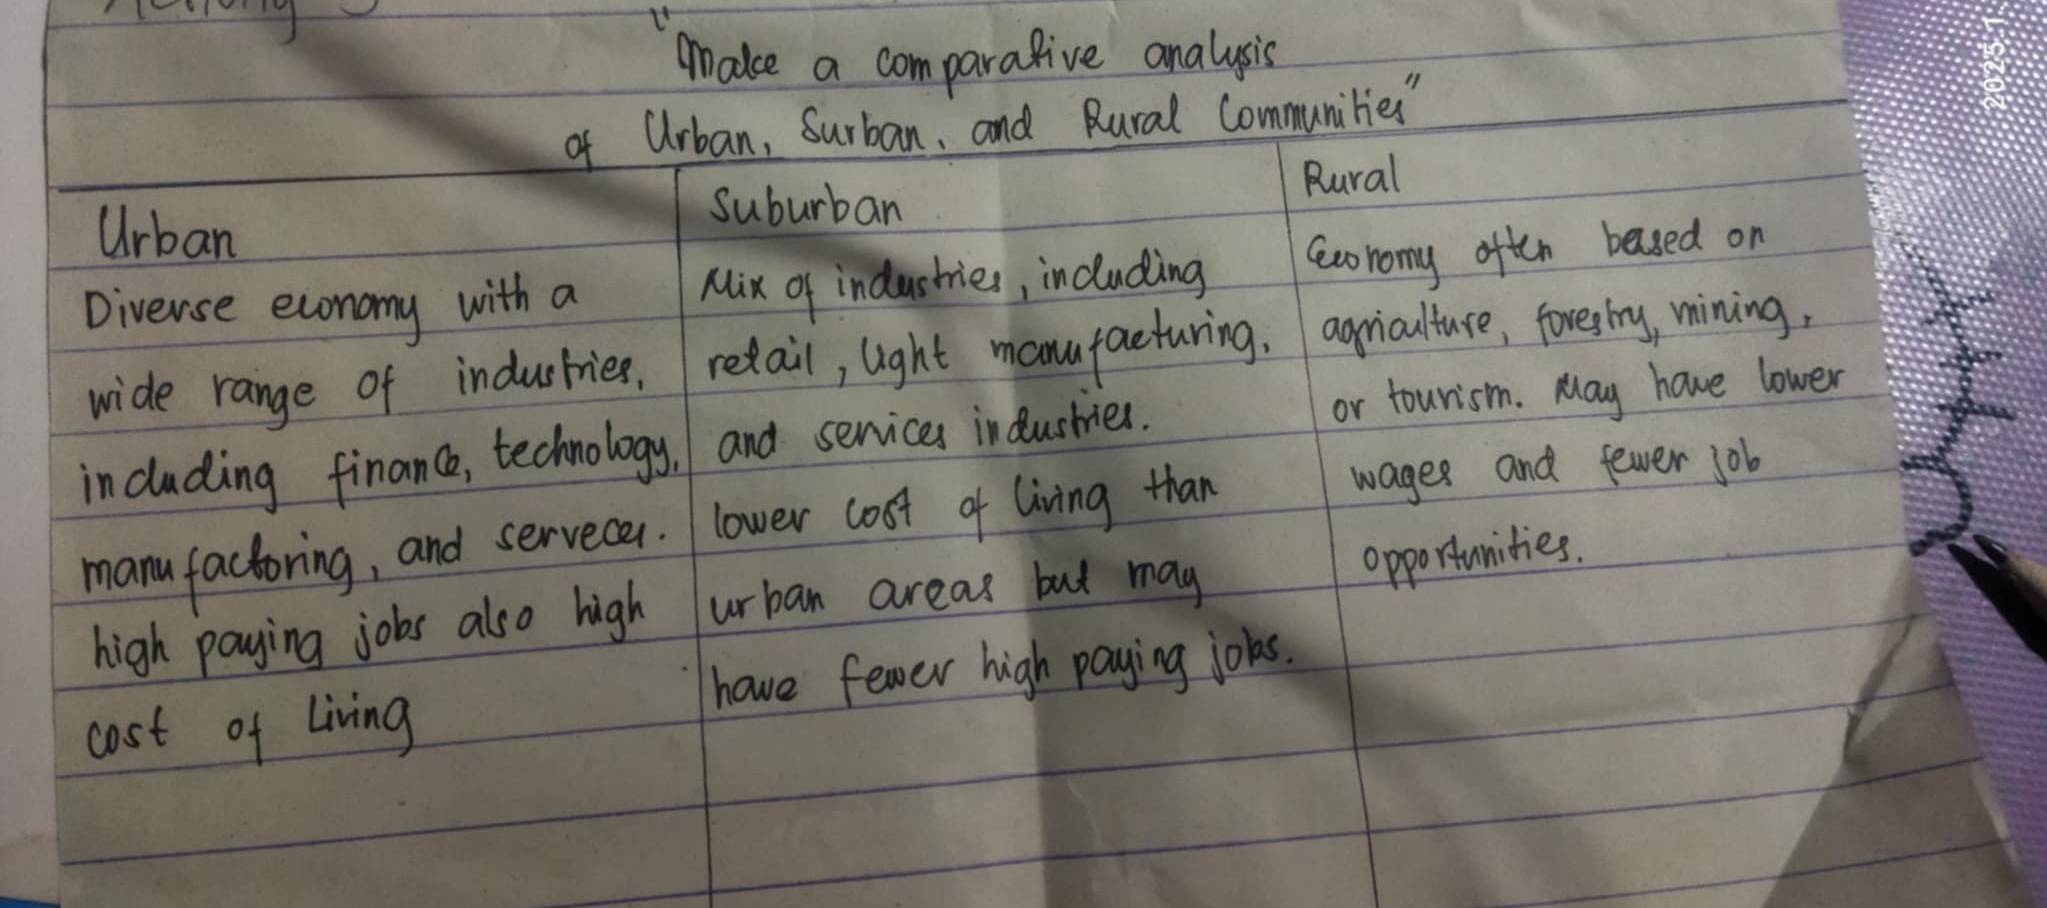 "Make a comparative analysis
of Urban, Surban, and Rural Communities"
Urban
Diverse economy with a
wide range of industries,
including finance, technology,
manufactoring, and serveces.
high paying jobs also high
cost of Living
Suburban
Mix of industries, including
retail, light manufacturing,
and services industries.
lower cost of living than
urban areas but may
have fewer high paying jobs.
Rural
Economy often based on
agriculture, forestry, mining,
or tourism. May have lower
wages and fewer job
opportunities.